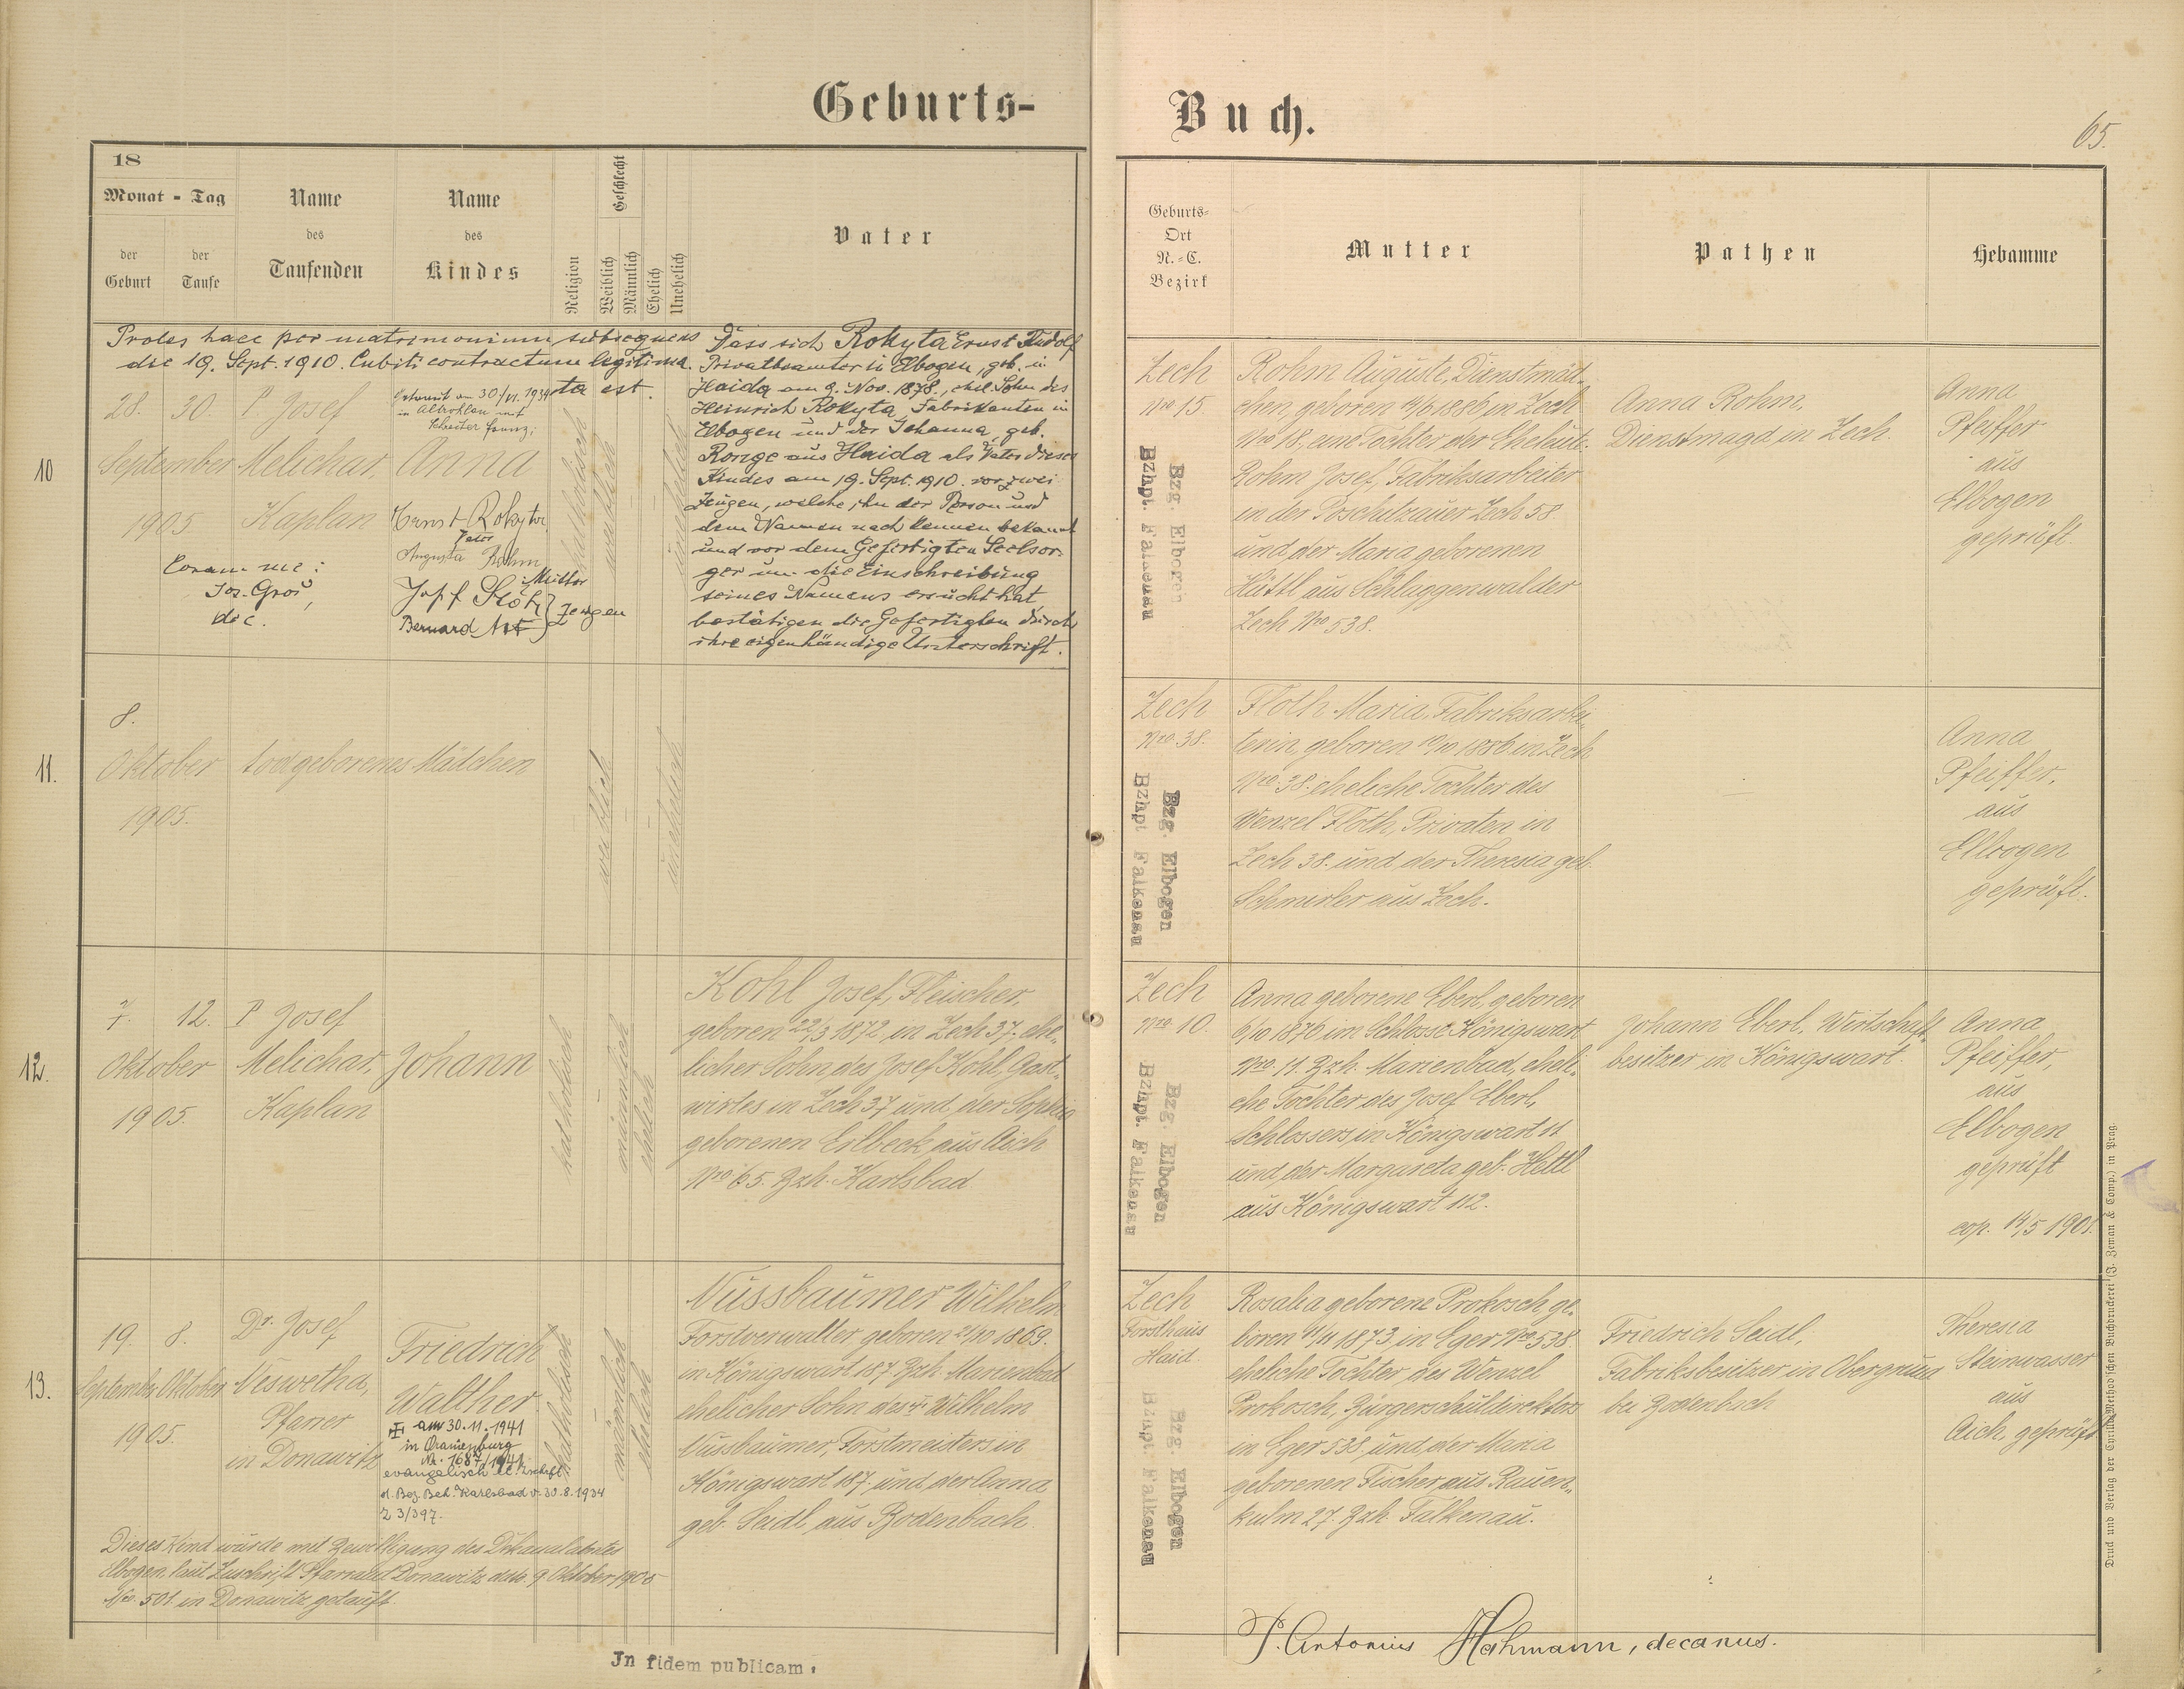 Geburts-
Buch.
65.
18
Monat - Tag
der Geburt
der Taufe
Name des Taufenden
Name des Kindes
Religion
Geschlecht
Weiblich
Männlich
Ehelich
Unehelich
Vater
Geburts-
Ort
N.-C.
Bezirk
Mutter
Pathen
Hebamme
Proles haec per matrimonium subsequens
die 19. Sept. 1910. Cubiti contractum legitima-
ta est.
10
28. 30.
September
1905
P. Josef
Melichar,
Kaplan
Getraut am 30./VI. 1934
in Altrohlau mit
Franz;
Anna
Ernst Rokyta
Vater
Augusta Rohm
Mutter
Josef
Bernard
Zeugen
Coram me:
Jos. Groß,
dec.
katholisch
weiblich
unehelich
Dass sich Rokyta Ernst Rudolf
Privatbeamter in Elbogen, geb. in
Haida am 9. Nov. 1878., ehel. Sohn des
Heinrich Rokyta, Fabrikanten in
Elbogen und der Johanna, geb.
Ronge aus Haida als Vater dieses
Kindes am 19. Sept. 1910. vor zwei
Zeugen, welche ihn der Person und
dem Namen nach kennen bekannt
und vor dem Gefertigten Seelsor-
ger um die Einschreibung
seines Namens ersucht hat
bestätigen die Gefertigten durch
ihre eigenhändige Unterschrift.
Zech
Nro 15.
Bzg. Elbogen
Bzhpt. Falkenau
Rohm Auguste, Dienstmäd-
chen, geboren 1886 in Zech
Nro 18. eine Tochter der Eheleute
Rohm Josef, Fabriksarbeiter
in der Poschitzauer Zech 58
und der Maria geborenen
Hüttl aus Schlaggenwalder
Zech Nro 538.
Anna Rohm,
Dienstmagd in Zech.
Anna
Pfeiffer
aus
Elbogen
geprüft.
11.
8.
Oktober
1905.
todgeborenes Mädchen
weiblich
unehelich
Zech
Nro 38.
Bzg. Elbogen
Bzhpt Falkenau
Floth Maria, Fabriksarbei-
terin, geboren 10/10 1886 in Zech
Nro 38. eheliche Tochter des
Wenzel Floth, Privaten in
Zech 38. und der Theresia geb.
Schmirler aus Zech.
Anna
Pfeiffer,
aus
Elbogen
geprüft.
12.
7. 12.
Oktober
1905.
P. Josef
Melichar,
Kaplan
Johann
katholisch
männlich
ehelich
Kohl Josef, Fleischer,
geboren 22/3 1872 in Zech 37, ehe-
licher Sohn des Josef Kohl, Gast-
wirtes in Zech 37 und der Sophia
geborenen Erlbeck aus Aich
Nro 65. Bzh. Karlsbad
Zech
Nro 10.
Bzg. Elbogen
Bzhpt. Falkenau
Anna geborene Eberl, geboren
6/10 1876 im Schlosse Königswart
Nro 11. Bzh. Marienbad, eheli-
che Tochter des Josef Eberl,
Schlossers in Königswart 11
und der Margareta geb. Hettl
aus Königswart 112.
Johann Eberl, Wirtschafts-
besitzer in Königswart.
Anna
Pfeiffer,
aus
Elbogen
geprüft
cop. 14/5 1901.
13.
19. 8.
September Oktober
1905.
Dr. Josef
Neswetha,
Pfarrer
in Donawitz
Friedrich
Walther.
am 30.11.1941
in Oranienburg
Nr. 1687/1941
evangelisch lt. Zuschrift
d. Bez. Beh. Karlsbad v. 30.8.1934
Z 3/397.
katholisch
männlich
ehelich
Nussbaumer Wilhelm
Forstverwalter geboren 2/10 1869.
in Königswart 187. Bzh. Marienbad
ehelicher Sohn des Wilhelm
Nussbaumer, Forstmeisters in
Königswart 187. und der Anna
geb. Seidl aus Bodenbach.
Dieses Kind wurde mit Bewilligung des Dekanalamtes
Elbogen laut Zuschrift Pfarramt Donawitz ddo. 9 Oktober 1905
No. 501. in Donawitz getauft.
Zech
Forsthaus
Haid.
Bzg. Elbogen
Bzhpt. Falkenau
Rosalia geborene Prokosch, ge-
boren 11/11 1873 in Eger Nro 538.
eheliche Tochter des Wenzel
Prokosch, Bürgerschuldirektors
in Eger 538. und der Maria
geborenen Fischer aus Rauen-
kulm 27. Bzh. Falkenau.
Friedrich Seidl,
Fabriksbesitzer in Obergrund
bei Bodenbach
Theresia
Steinwasser
aus
Aich, geprüft
In fidem publicam,
P. Antonius Hahmann, decanus.
Druck und Verlag der Cyrillo-Method'schen Buchdruckerei (J. Zeman & Comp.) in Prag.